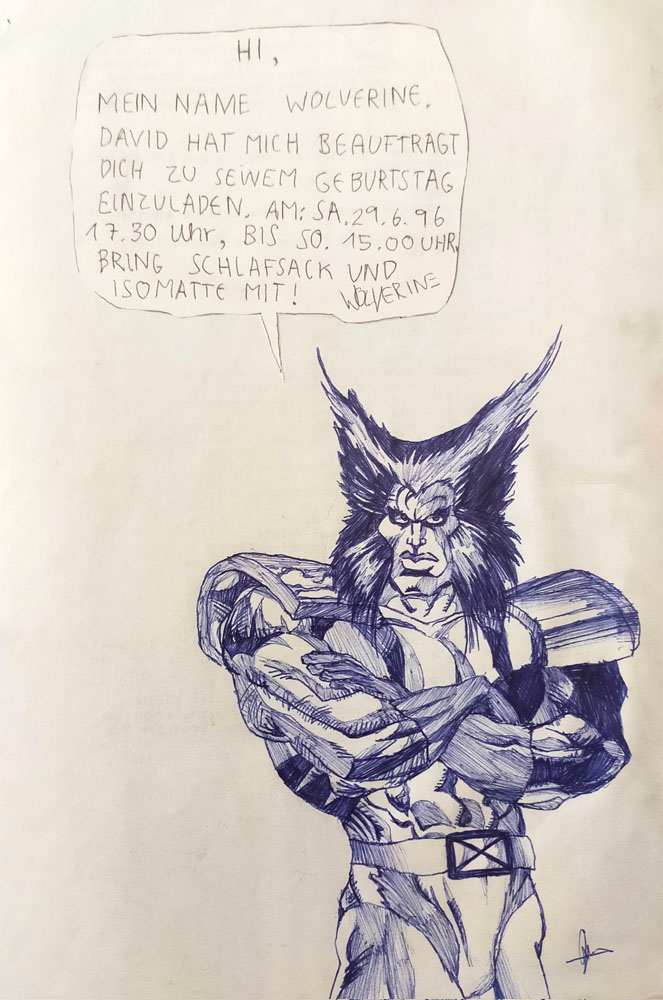 HI,
MEIN NAME WOLVERINE.
DAVID HAT MICH BEAUFTRAGT
DICH ZU SEINEM GEBURTSTAG
EINZULADEN. AM: SA. 29.6.96
17.30 Uhr, BIS SO. 15.00 UHR.
BRING SCHLAFSACK UND
ISOMATTE MIT! WOLVERINE